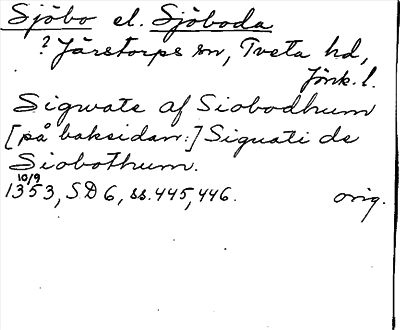 Sjöbo el. Sjöboda
? Järstorps sn, Tveta hd,
Jönk. l.
Sigwate af Siobodhum
[på baksidan:] Siguati de
Siobothum.
10/9
1353, SD 6, ss. 445, 446. orig.